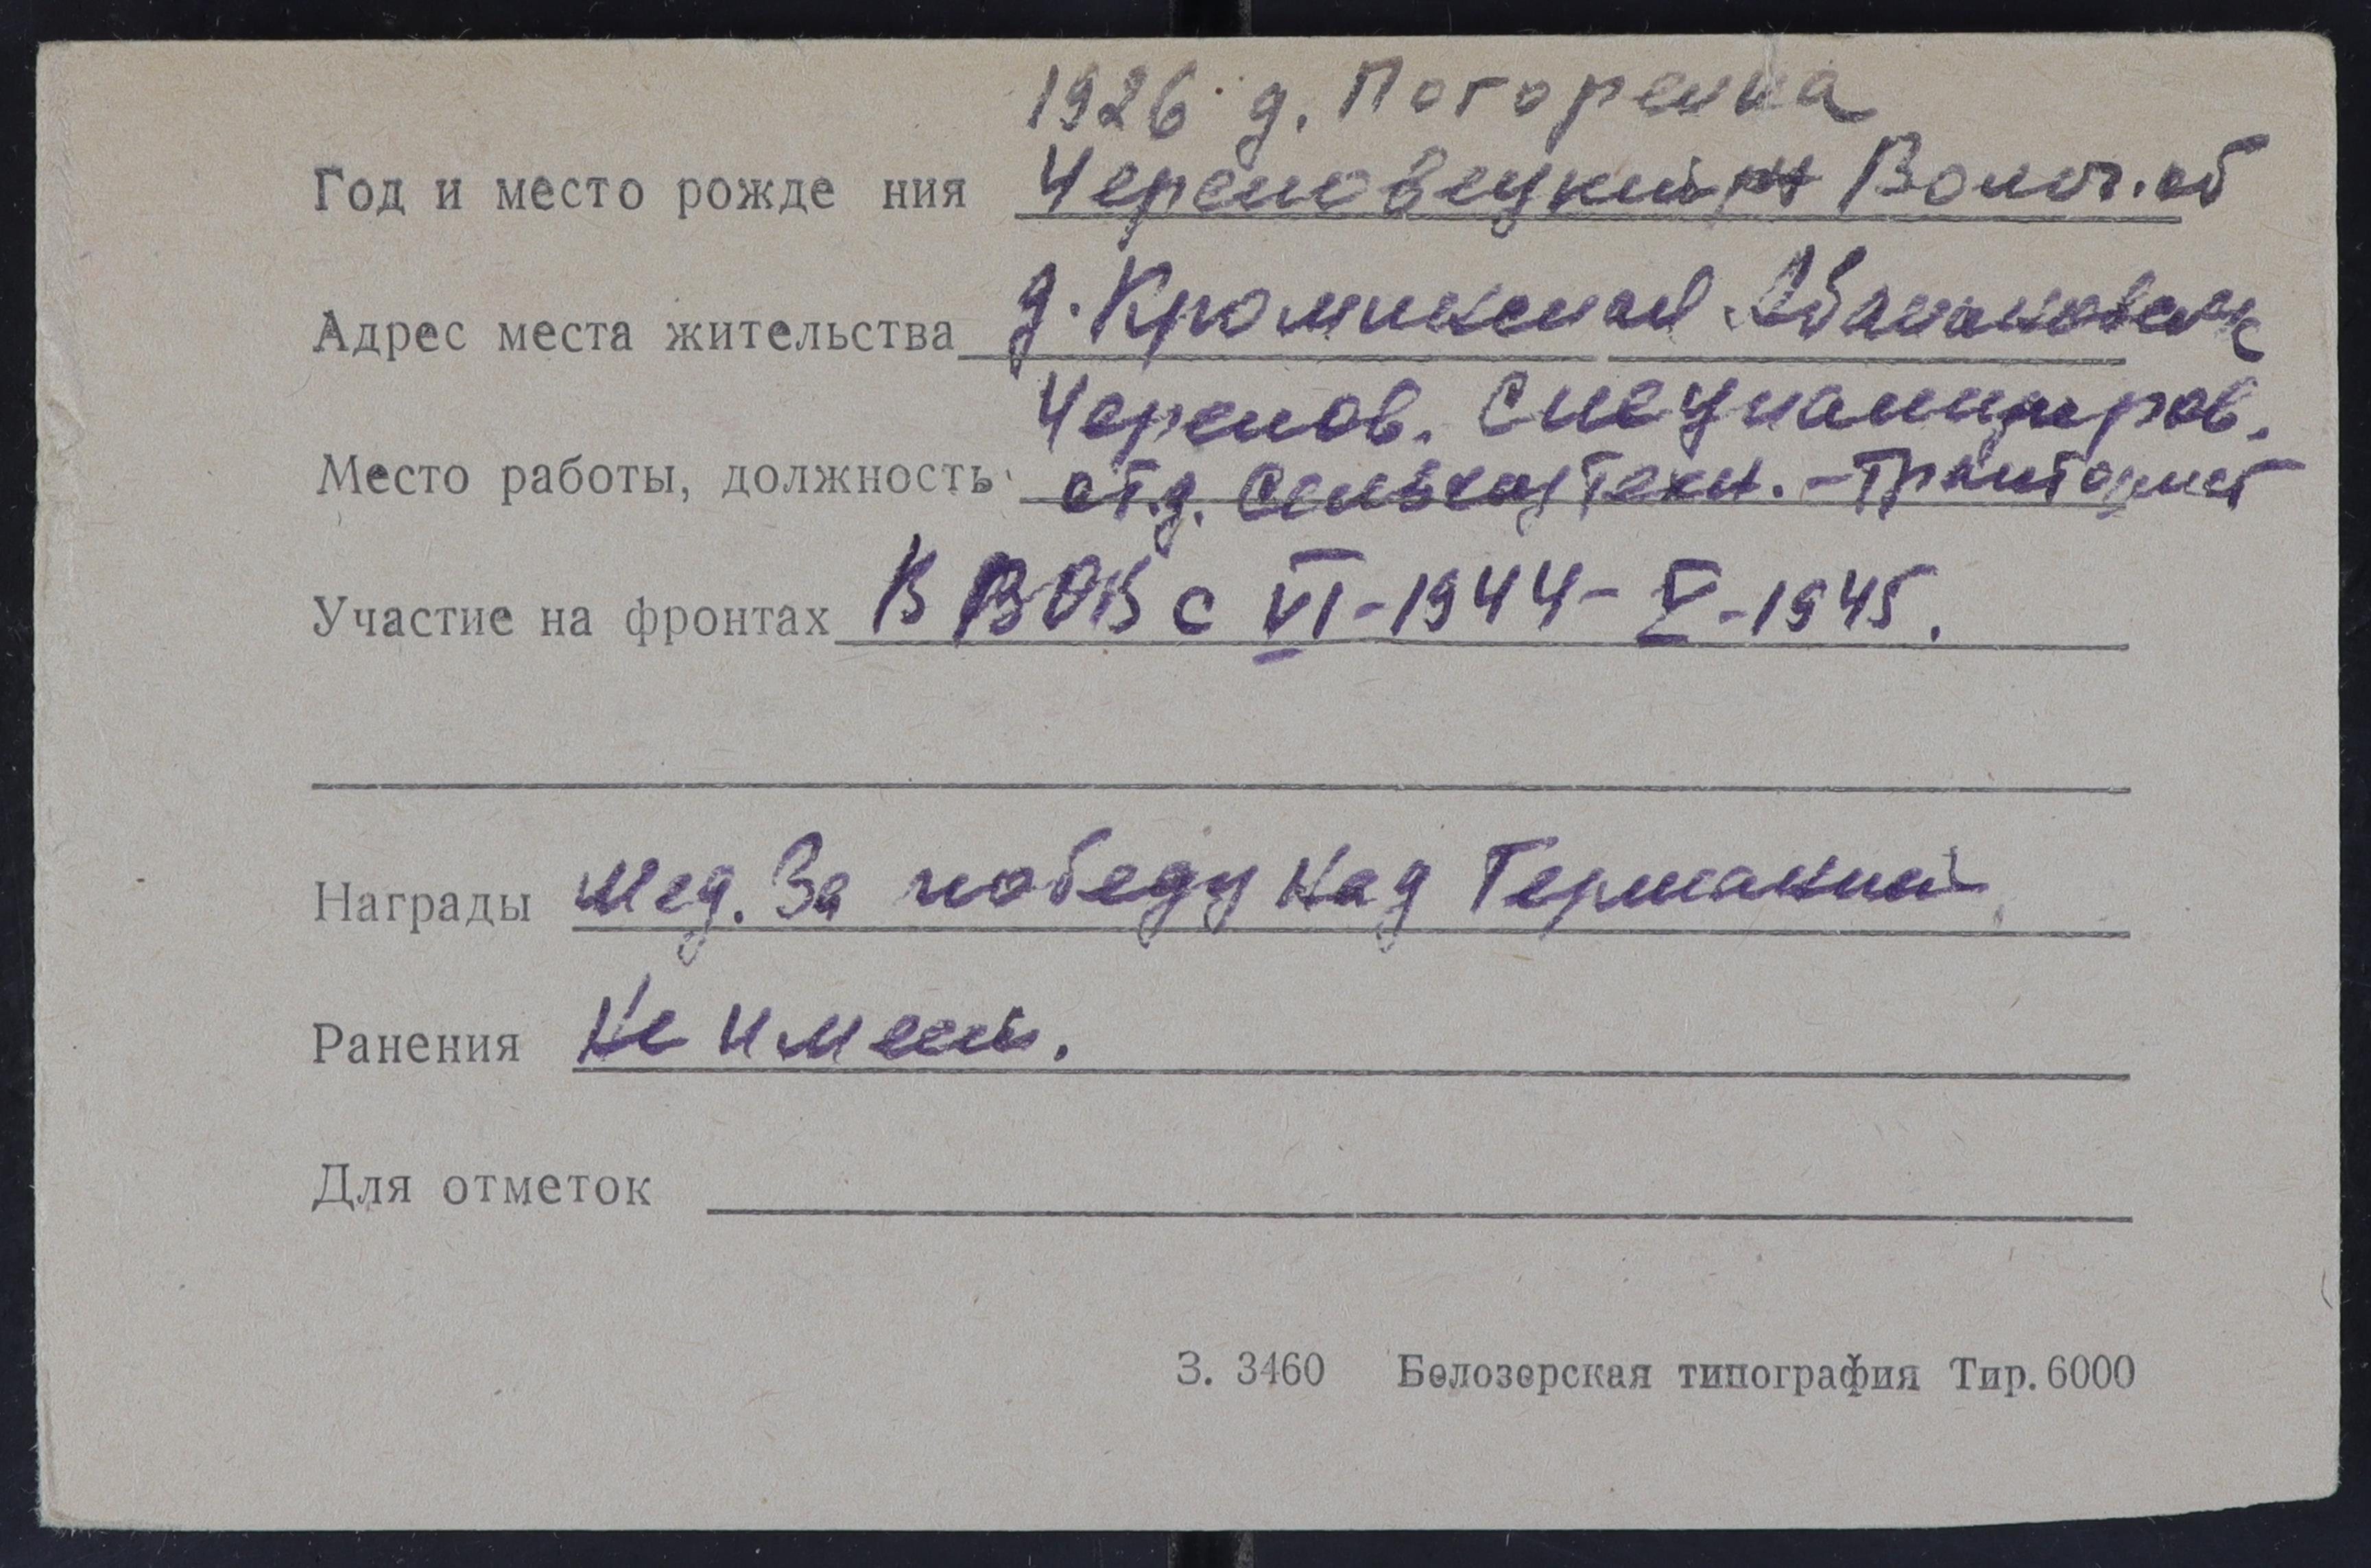 1926 д. Погорелка
Год и место рожде ния Череповецкий рн Волог. об
Адрес места жительства д.
Черепов. Специализиров.
Место работы, должность отд. Сельхозтехн. - Тракторист
Участие на фронтах В ВОВ с VI-1944- V-1945.
Награды мед. За победу над Германией
Ранения Не имеет.
Для отметок
З. 3460 Белозерская типография Тир. 6000